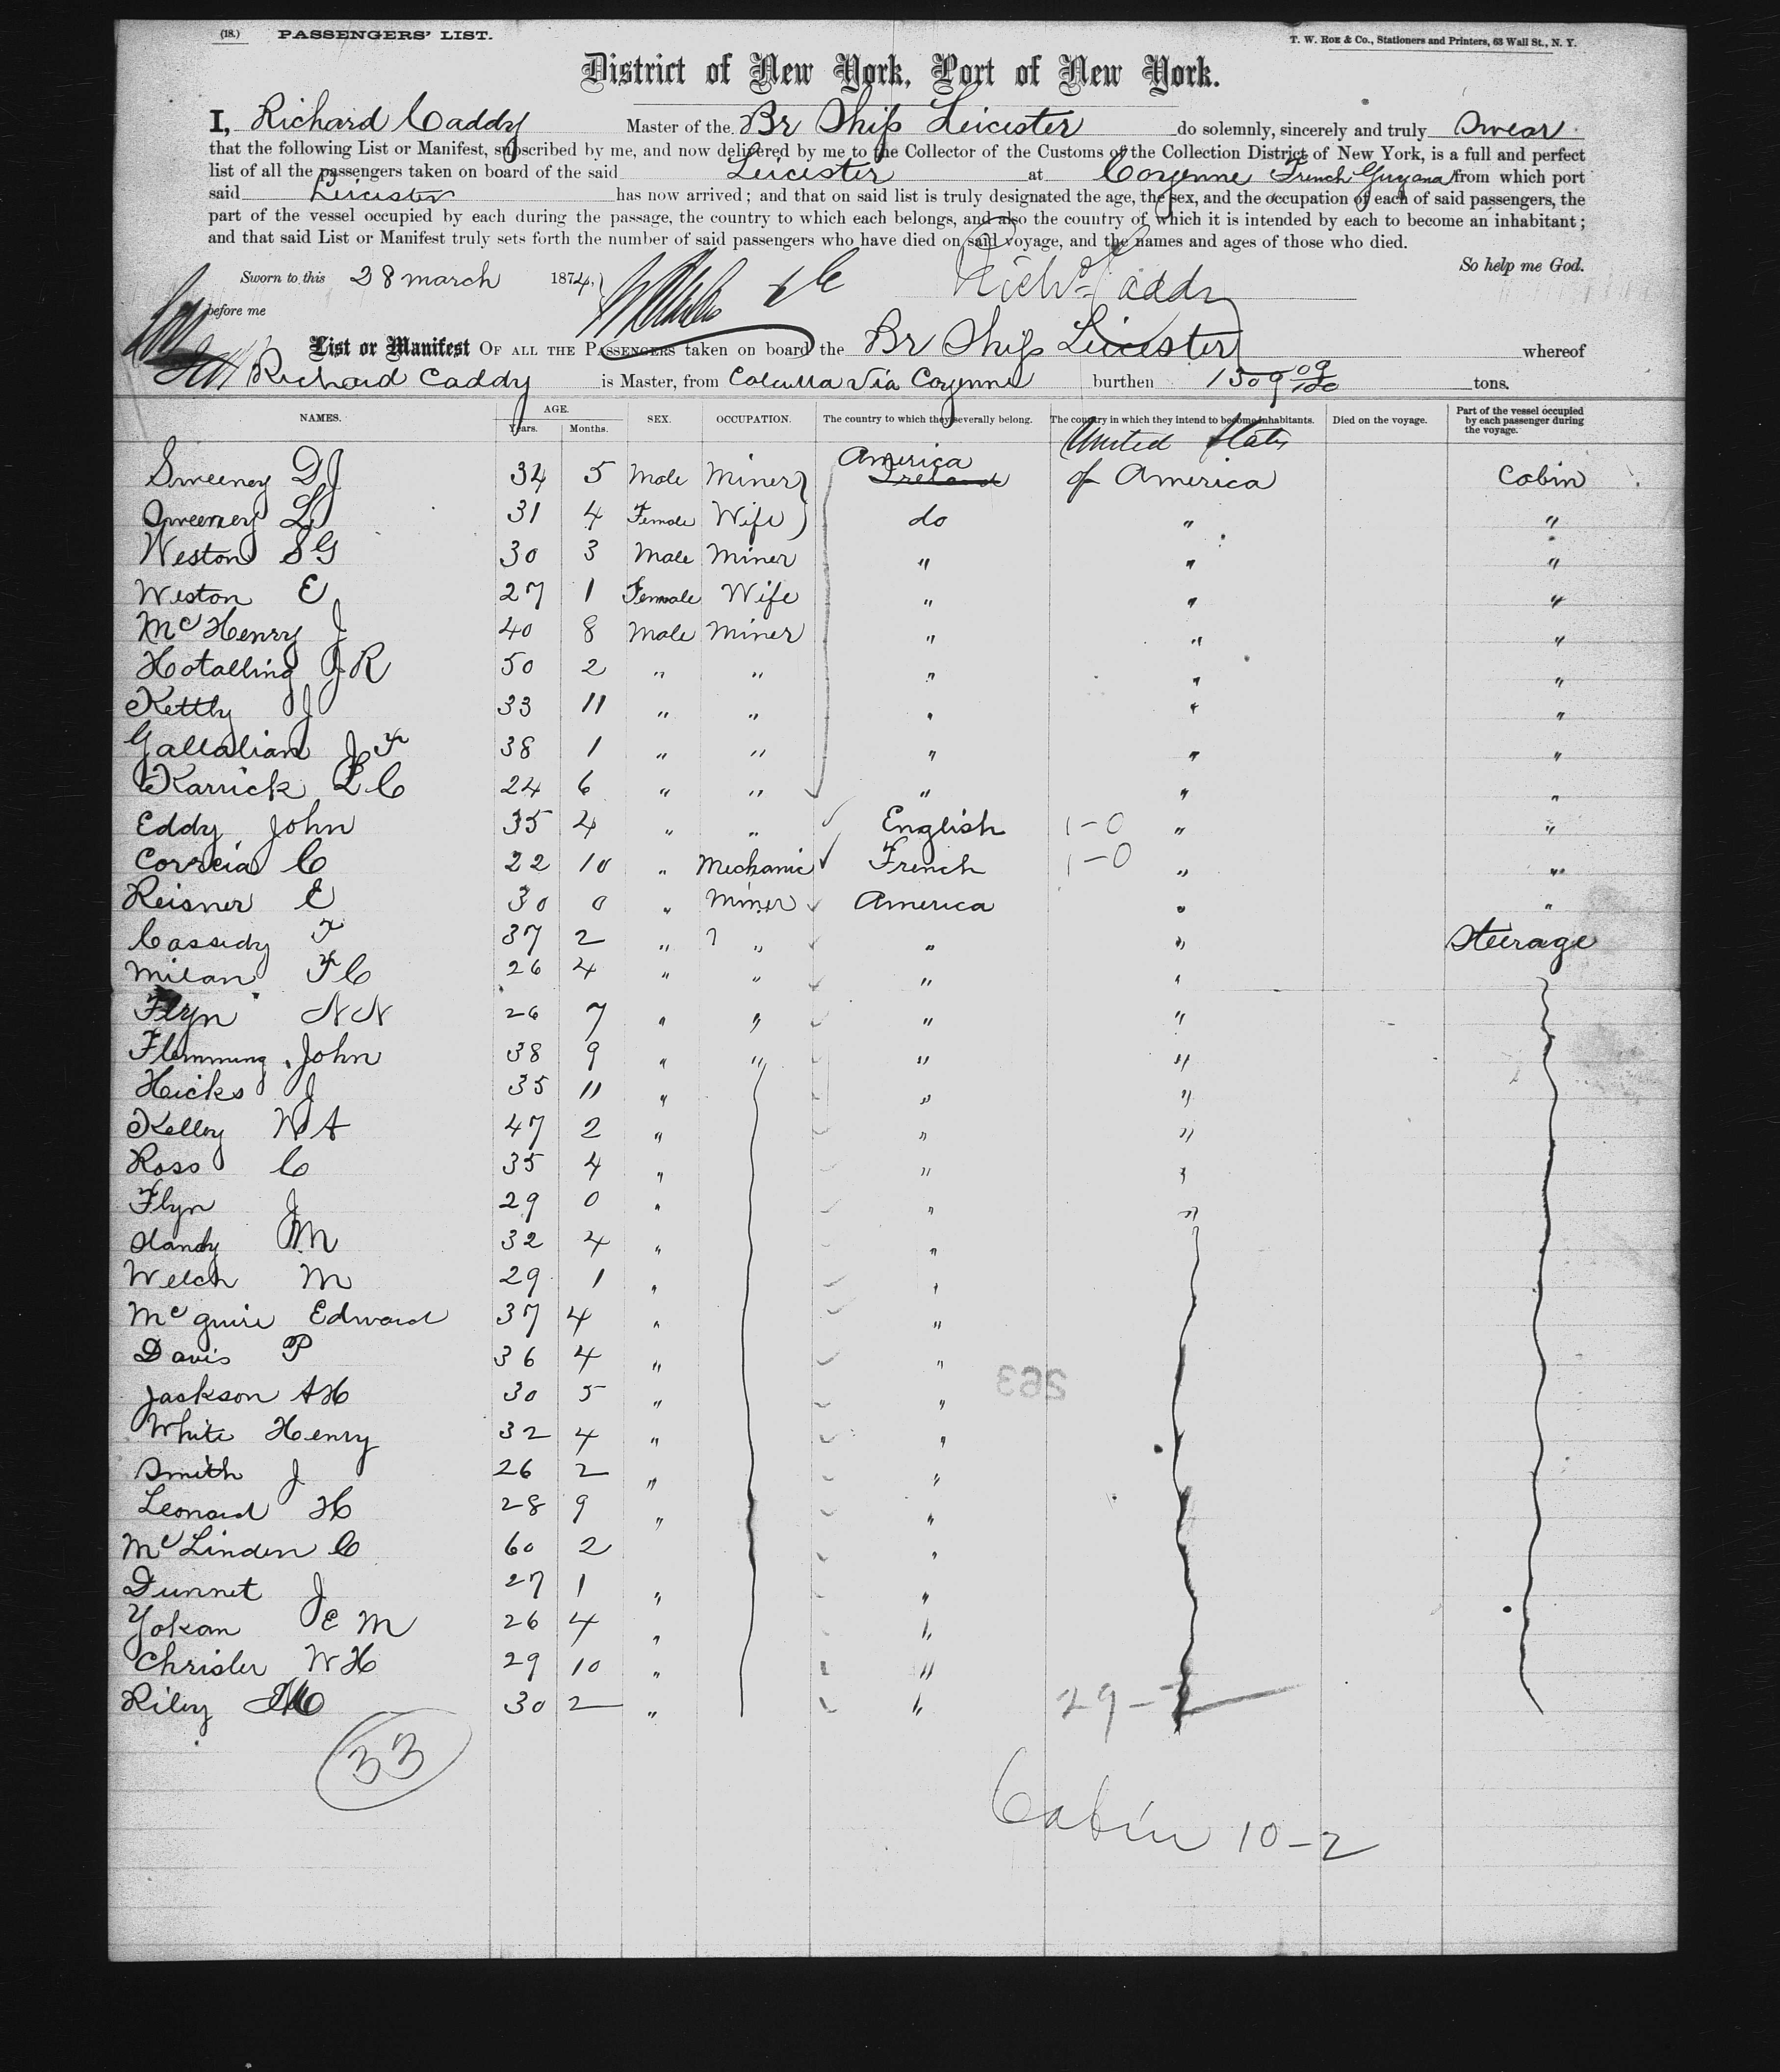 (18.) PASSENGERS' LIST.
T. W. ROE & CO., Stationers and Printers, 63 Wall St., N. Y.
District of New York, Port of New York.
I, Richard Caddy Master of the Br Ship Leicester do solemnly, sincerely and truly Swear
that the following List or Manifest, subscribed by me, and now delivered by me to the Collector of the Customs of the Collection District of New York, is a full and perfect
list of all the passengers taken on board of the said Leicester at Cayenne French Guyana from which port
said Leicester has now arrived; and that on said list is truly designated the age, the sex, and the occupation of each of said passengers, the
part of the vessel occupied by each during the passage, the country to which each belongs, and also the country of which it is intended by each to become an inhabitant;
and that said List or Manifest truly sets forth the number of said passengers who have died on said voyage, and the names and ages of those who died.
So help me God.
Sworn to this 28 march 1874,
Richd Caddy
before me
List or Manifest OF ALL THE PASSENGERS taken on board the Br Ship Leicester whereof
Richard Caddy is Master, from Calcutta Via Cayenne burthen 1309 09/100 tons.
NAMES. AGE. Years. Months. SEX. OCCUPATION. The country to which they severally belong. The country in which they intend to become inhabitants. Died on the voyage. Part of the vessel occupied by each passenger during the voyage.
United States
America
Sweeney D J 34 5 Male Miner Ireland of America Cabin
Sweeney L 31 4 Female Wife do " "
Weston S G 30 3 Male Miner " " "
Weston E 27 1 Female Wife " " "
McHenry J 40 8 Male Miner " " "
Hotalling J R 50 2 " " " " "
Kettly J 33 11 " " " " "
Gallalian J F 38 1 " " " " "
Karrick L C 24 6 " " " " "
Eddy John 35 4 " " English 1-0 " "
Correia C 22 10 " Mechanic French 1-0 " "
Reisner E 30 0 " Miner America " "
Cassidy F 37 2 " " " " Steerage
Milan F C 26 4 " " " "
Flyn N N 26 7 " " " "
Flemming John 38 9 " " " "
Hicks J 35 11 " " "
Kelley W A 47 2 " " "
Ross C 35 4 " " "
Flyn J 29 0 " " "
Handy M 32 4 " "
Welch M 29 1 " "
McGuire Edward 37 4 " "
Davis P 36 4 " "
Jackson A H 30 5 " "
White Henry 32 4 " "
Smith J 26 2 " "
Leonard H 28 9 " "
McLinden C 60 2 "
Dunnet J 27 1 " "
Yokan E M 26 4 " "
Chrisler W H 29 10 " "
Riley 30 2 " " 29-2
33
Cabin 10-2